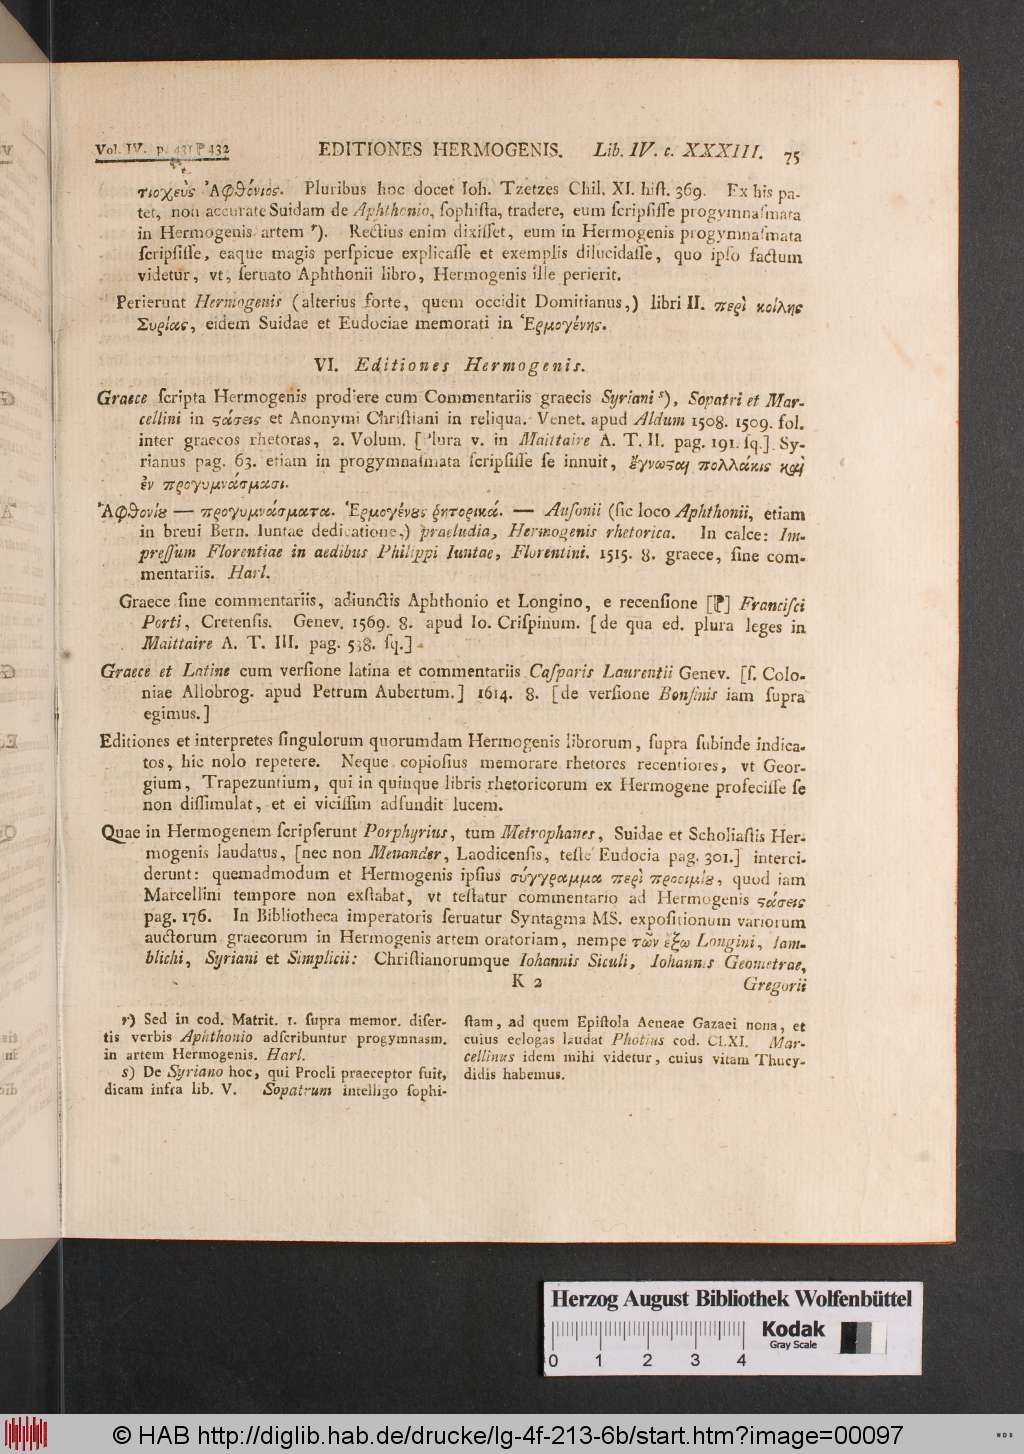 Vol. IV. p. 431 ⁋ 432 EDITIONES HERMOGENIS. Lib. IV. c. XXXIII. 75
τιοχεὺς Ἀφθόνιος. Pluribus hoc docet Ioh. Tzetzes Chil. XI. hiſt. 369. Ex his pa-
tet, non accurate Suidam de Aphthonio, ſophiſta, tradere, eum ſcripſiſſe progymnaſmata
in Hermogenis artem r). Rectius enim dixiſſet, eum in Hermogenis progymnaſmata
ſcripſiſſe, eaque magis perſpicue explicaſſe et exemplis dilucidaſſe, quo ipſo factum
videtur, vt, ſeruato Aphthonii libro, Hermogenis ille perierit.
Perierunt Hermogenis (alterius forte, quem occidit Domitianus,) libri II. περὶ κοίλης
Συρίας, eidem Suidae et Eudociae memorati in Ἑρμογένης.
VI. Editiones Hermogenis.
Graece ſcripta Hermogenis prodiere cum Commentariis graecis Syriani s), Sopatri et Mar-
cellini in ϛάσεις et Anonymi Chriſtiani in reliqua. Venet. apud Aldum 1508. 1509. fol.
inter graecos rhetoras, 2. Volum. [Plura v. in Maittaire A. T. II. pag. 191. ſq.] Sy-
rianus pag. 63. etiam in progymnaſmata ſcripſiſſe ſe innuit, ἔγνωϛαι πολλάκις καὶ
ἐν προγυμνάσμασι.
Ἀφθονίȣ — προγυμνάσματα. Ἑρμογένȣς ῥητορικά. — Auſonii (ſic loco Aphthonii, etiam
in breui Bern. Iuntae dedicatione,) praeludia, Hermogenis rhetorica. In calce: Im-
preſſum Florentiae in aedibus Philippi Iuntae, Florentini. 1515. 8. graece, ſine com-
mentariis. Harl.
Graece ſine commentariis, adiunctis Aphthonio et Longino, e recenſione [⁋] Franciſci
Porti, Cretenſis. Genev. 1569. 8. apud Io. Criſpinum. [de qua ed. plura leges in
Maittaire A. T. III. pag. 538. ſq.]
Graece et Latine cum verſione latina et commentariis Caſparis Laurentii Genev. [ſ. Colo-
niae Allobrog. apud Petrum Aubertum.] 1614. 8. [de verſione Bonſinis iam ſupra
egimus.]
Editiones et interpretes ſingulorum quorumdam Hermogenis librorum, ſupra ſubinde indica-
tos, hic nolo repetere. Neque copioſius memorare rhetores recentiores, vt Geor-
gium, Trapezuntium, qui in quinque libris rhetoricorum ex Hermogene profeciſſe ſe
non diſſimulat, et ei viciſſim adfundit lucem.
Quae in Hermogenem ſcripſerunt Porphyrius, tum Metrophanes, Suidae et Scholiaſtis Her-
mogenis laudatus, [nec non Menander, Laodicenſis, teſte Eudocia pag. 301.] interci-
derunt: quemadmodum et Hermogenis ipſius σύγγραμμα περὶ προοιμίȣ, quod iam
Marcellini tempore non exſtabat, vt teſtatur commentario ad Hermogenis ϛάσεις
pag. 176. In Bibliotheca imperatoris ſeruatur Syntagma MS. expoſitionum variorum
auctorum graecorum in Hermogenis artem oratoriam, nempe τῶν ἔξω Longini, Iam-
blichi, Syriani et Simplicii: Chriſtianorumque Iohannis Siculi, Iohannis Geometrae,
K 2 Gregorii
r) Sed in cod. Matrit. 1. ſupra memor. diſer-
tis verbis Aphthonio adſcribuntur progymnaſm.
in artem Hermogenis. Harl.
s) De Syriano hoc, qui Procli praeceptor fuit,
dicam infra lib. V. Sopatrum intelligo ſophi-
ſtam, ad quem Epiſtola Aeneae Gazaei nona, et
cuius eclogas laudat Photius cod. CLXI. Mar-
cellinus idem mihi videtur, cuius vitam Thucy-
didis habemus.
Herzog August Bibliothek Wolfenbüttel
Kodak
Gray Scale
0 1 2 3 4
© HAB http://diglib.hab.de/drucke/lg-4f-213-6b/start.htm?image=00097